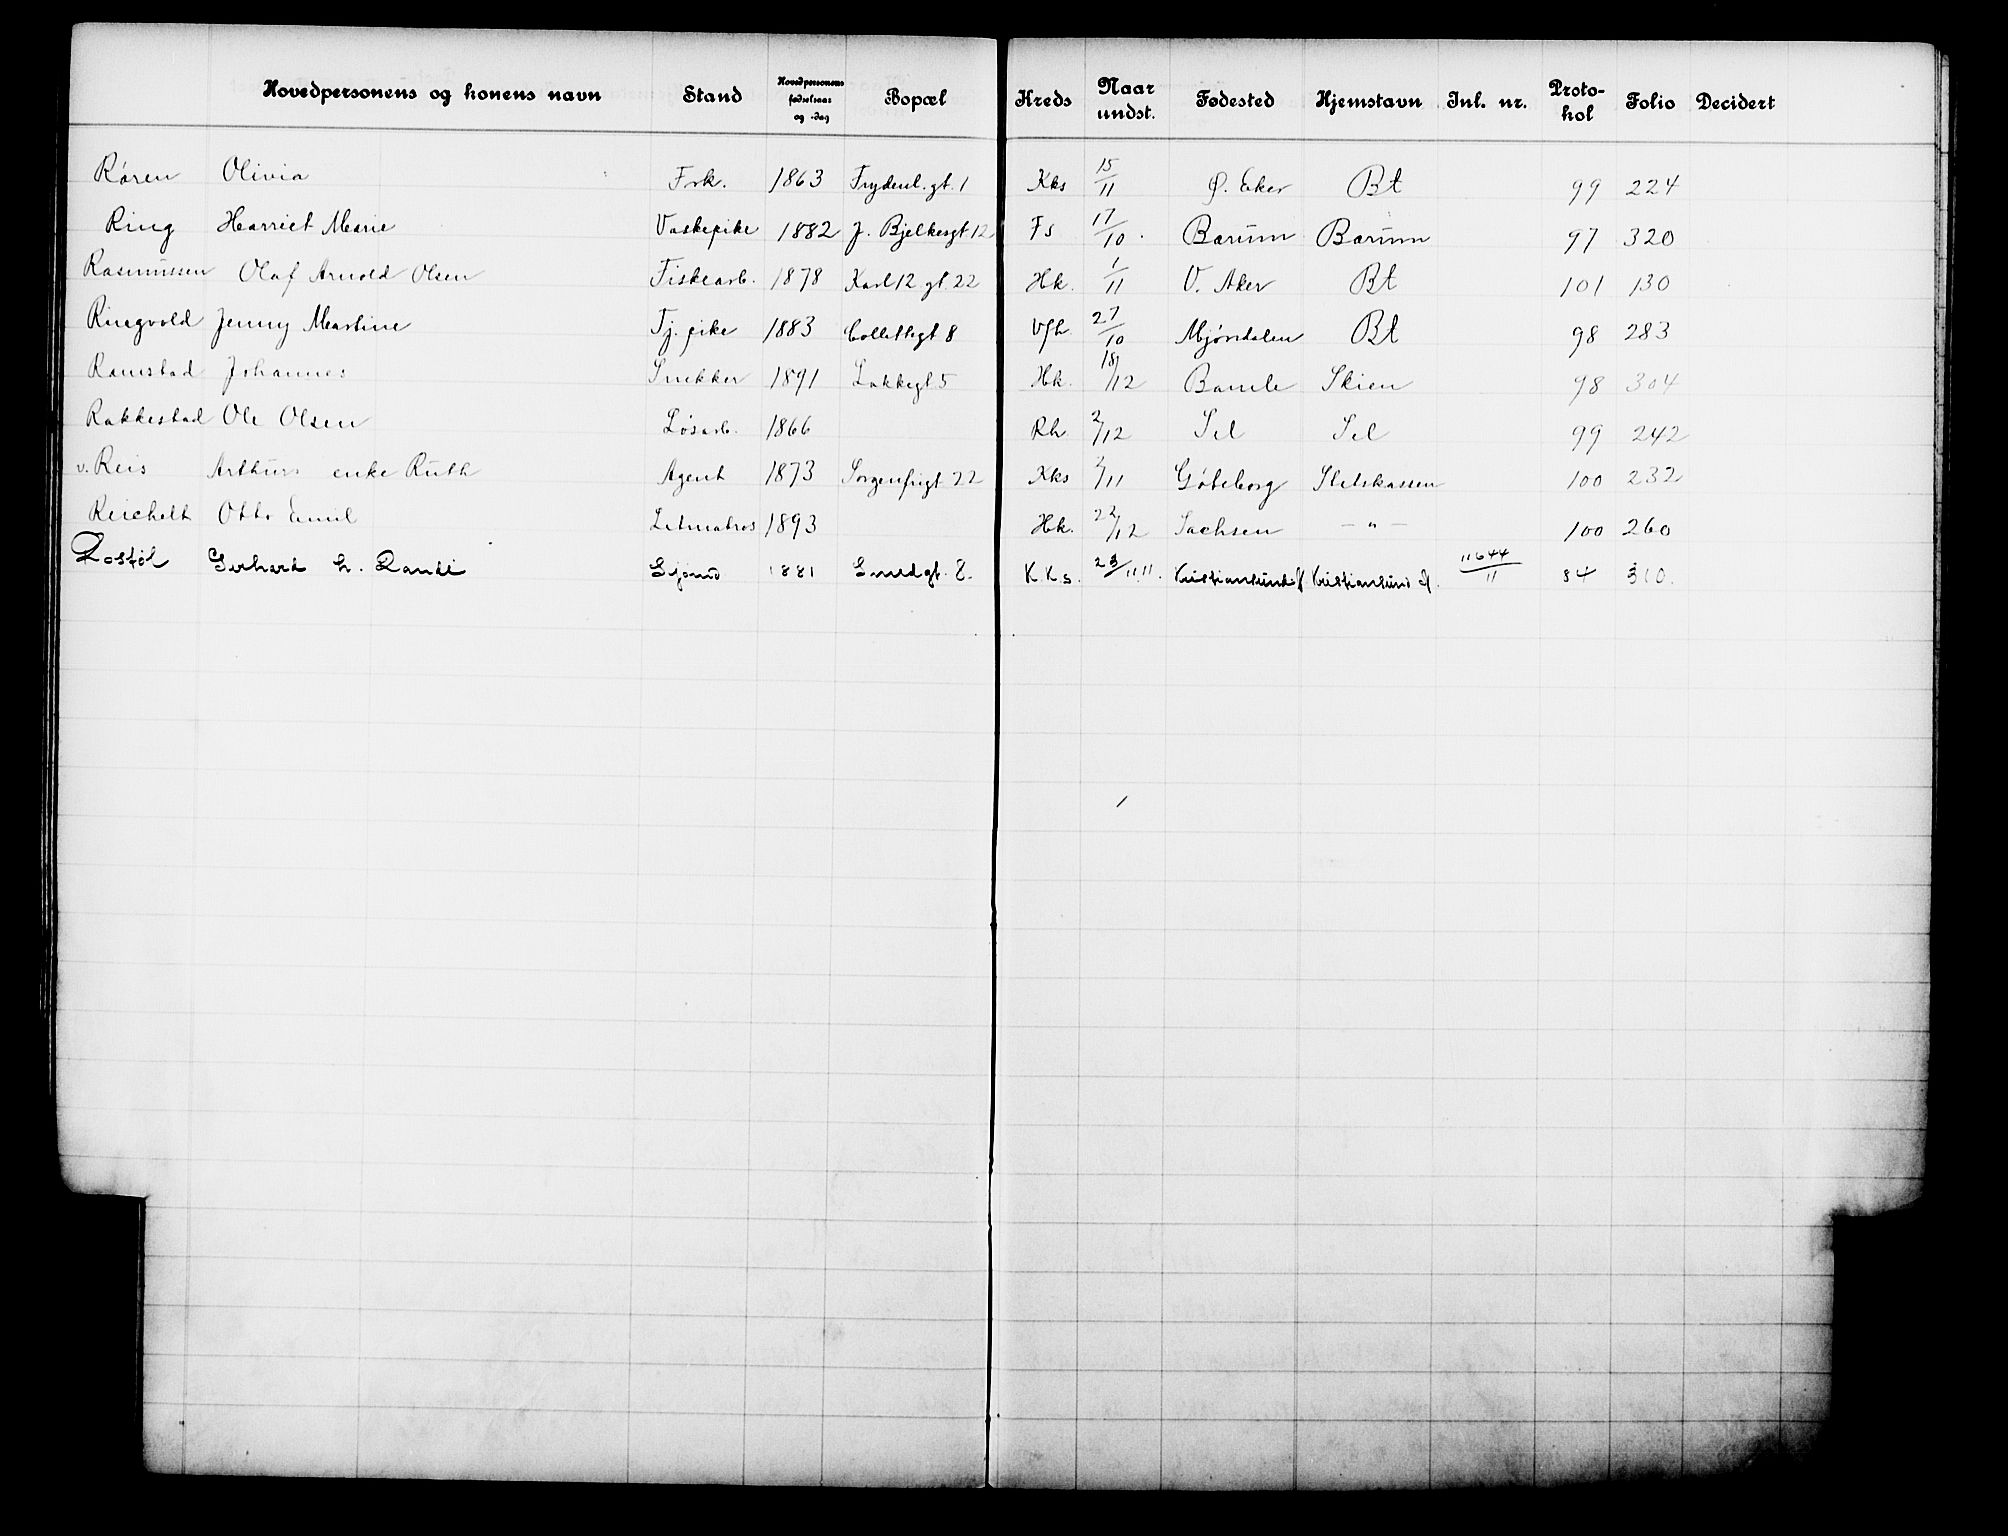 Hovedpersonens og konens navn Stand Hovedpersonens fødselsaar og -dag Bopæl Kreds Naar undst. Fødested Hjemstavn Jnl. nr. Protokol Folio Decidert
Røren Olivia Frk. 1863 Frydenl. gt. 1 Kks 15/11 Ø. Eker Bt 99 224
Ring Harriet Marie Vaskepike 1882 J. Bjelkesgt 12 Fs 17/10. Bærum Bærum 97 320
Rasmussen Olaf Arnold Olsen Fiskearb. 1878 Karl 12 gt. 22 Hk. 1/11 V. Aker Bt 101 130
Ringvold Jenny Martine Tj. pike 1883 Collettsgt 8 Vfh. 27/10 Mjøndalen Bt 98 283
Ramstad Johannes Snekker 1891 Lakkegt 5 Hk. 18/12 Bamle Skien 98 304
Rakkestad Ole Olsen Løsarb. 1866 Rh. 2/12 Sel Sel 99 242
v. Reis Arthurs enke Ruth Agent 1873 Sorgenfrigt 22 Kks 2/11 Gøteborg Statskassen 100 232
Reichelt Otto Emil Letmatros 1893 Hk. 22/12 Sachsen — " — 100 260
Rostøl Gerhard h. Randi Sjømd 1881 Smedgt. 8. KKs. 23/11 11. Kristiansund Kristiansund 11644/11 84 310.